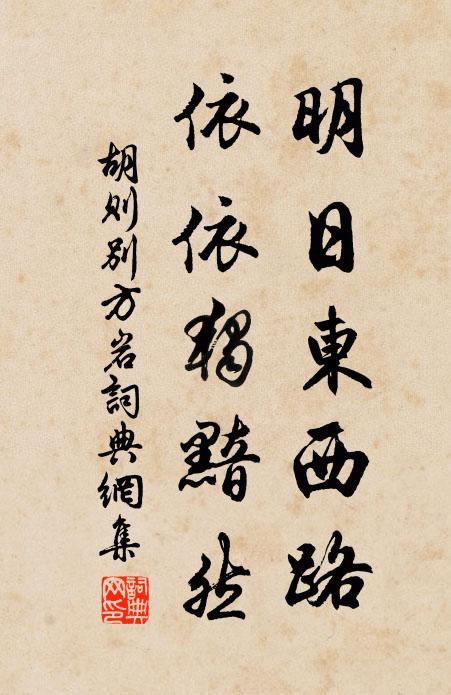 明日東西路
依依獨黯然
胡则别方岩詞典網集
詞典
网印